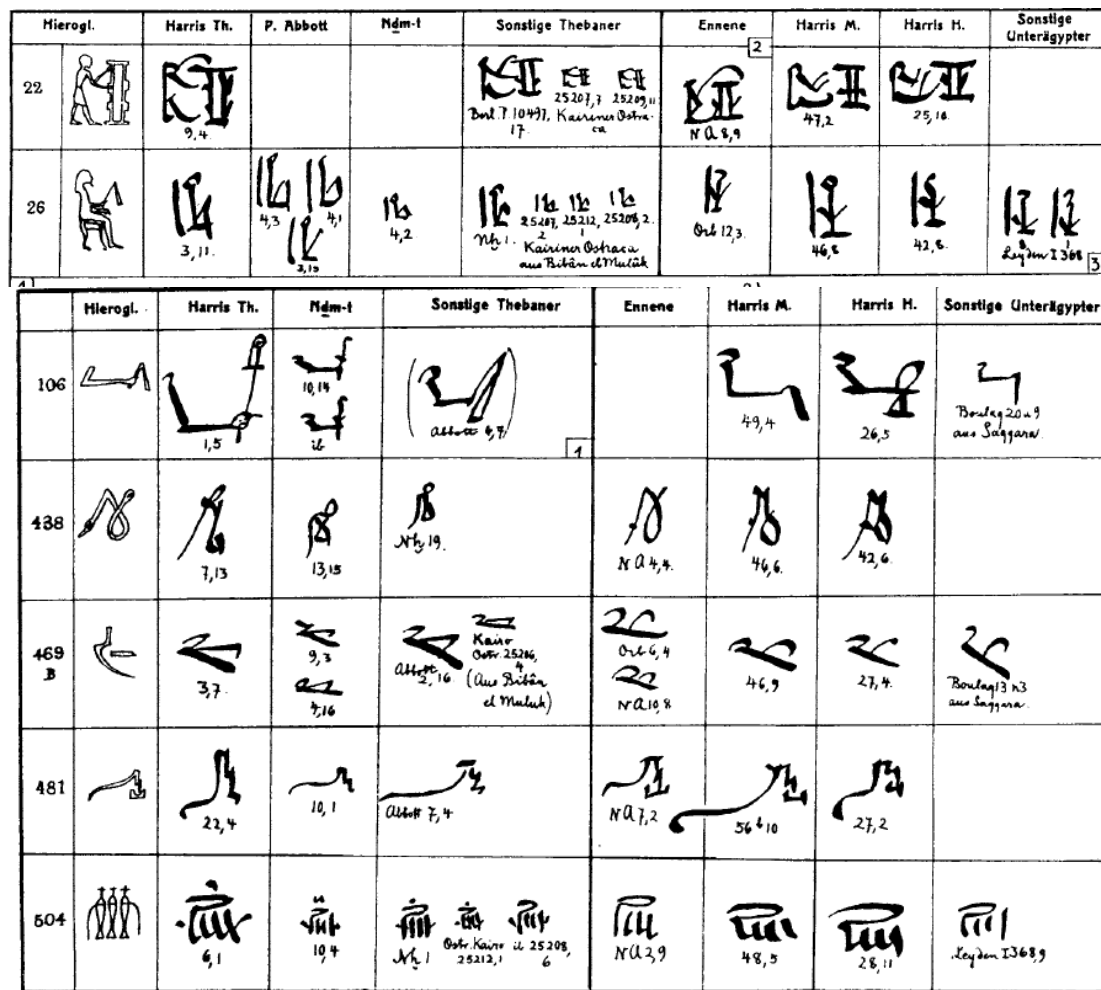 Hierogl. Harris Th. P. Abbott Nḏm-t Sonstige Thebaner Ennene Harris M. Harris H. Sonstige Unterägypter
2
22
9,4. Berl. P. 10497, 17. 25207,7 25209,11 Kairiner Ostraca N A 8,9 47,2 25,10.
26
3,11. 4,3 4,1 3,15 4,2 Nḫ 1. 25207, 2 25212, 1 25208,2. Kairiner Ostraca aus Bibân el Mulûk Orb 12,3. 46,8 42,8. 8 1 Leyden I 368
3
Hierogl. Harris Th. Nḏm-t Sonstige Thebaner Ennene Harris M. Harris H. Sonstige Unterägypter
106
1,5 10,14 ib Abbott 4,7 49,4 26,5 Boulaq 20 u 9 aus Saqqara.
1
438
7,13 13,15 Nḫ 19. N A 4,4. 46,6. 42,6.
469 B
3,7. 9,3 4,16 Abbott 2,16 Kairo Ostr. 25206, 4 (Aus Bibân el Muluk) Orb 6,4 N A 10,8 46,9 27,4. Boulaq 13 n 3 aus Saqqara.
481
22,4 10,1 Abbott 7,4 N A 7,2 56 b 10 27,2
504
6,1 10,4 Nḫ 1 Ostr. Kairo 25212,1 ib 25208, 6 N A 2,9 48,5 28,11 Leyden I 368,9